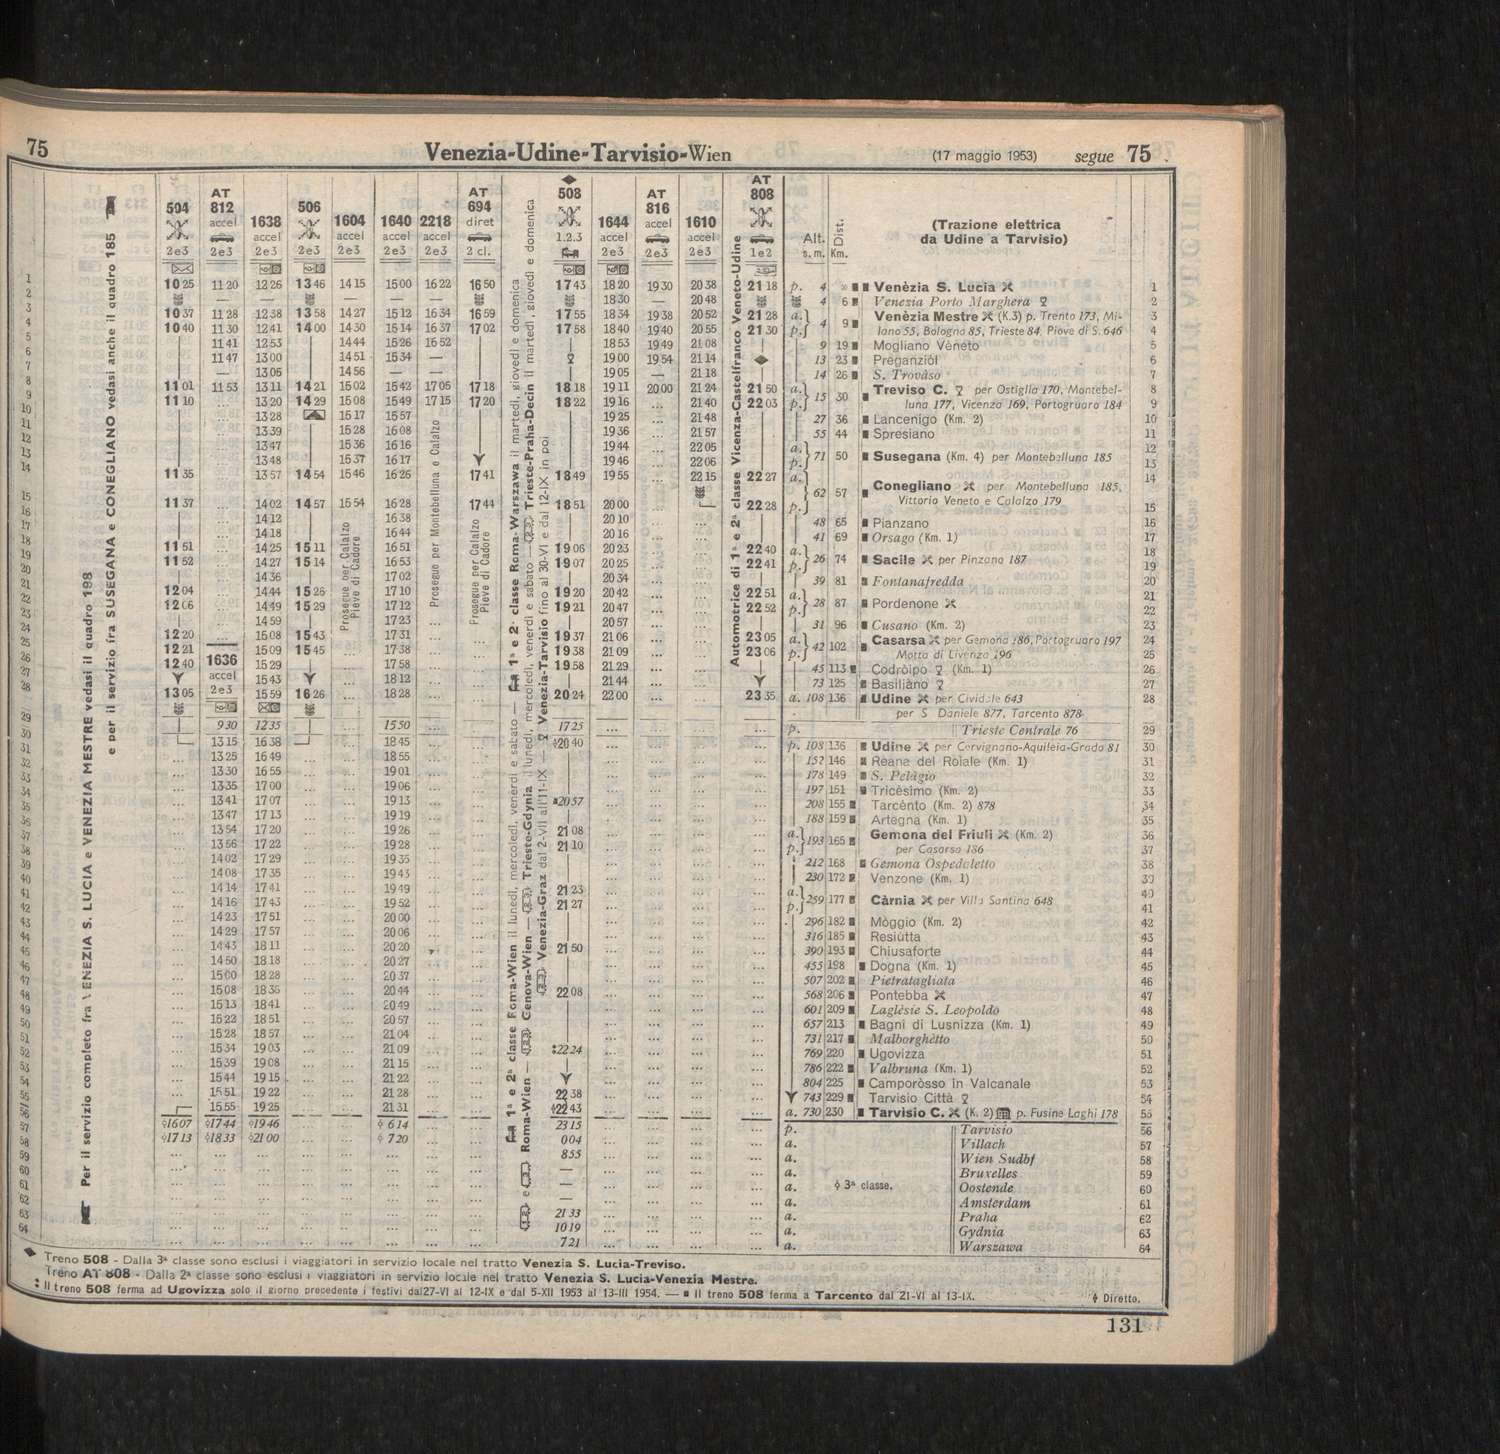 75 Venezia-Udine-Tarvisio-Wien (17 maggio 1953) segue 75
Per il servizio completo fra VENEZIA S. LUCIA e VENEZIA MESTRE vedasi il quadro 198
e per il servizio fra SUSEGANA e CONEGLIANO vedasi anche il quadro 185
504 2e3
AT 812 accel 2e3
1638 accel 2e3
506 2e3
1604 accel 2e3
1640 accel 2e3
2218 accel 2e3
AT 694 diret 2 cl.
508 1.2.3
1644 accel 2e3
AT 816 accel 2e3
1610 accel 2e3
AT 808 1e2
Alt. s.m. Dist. Km.
(Trazione elettrica
da Udine a Tarvisio)
1 10 25 11 20 12 26 13 46 14 15 15 00 16 22 16 50 17 43 18 20 19 30 20 38 21 18 p. 4 Venèzia S. Lucia 1
2 — — — — 18 30 — 20 48 4 6 Venezia Porto Marghera 2
3 10 37 11 28 12 38 13 58 14 27 15 12 16 34 16 59 17 55 18 34 19 38 20 52 21 28 a. 4 9 Venèzia Mestre (K.3) p. Trento 173, Mi- 3
4 10 40 11 30 12 41 14 00 14 30 15 14 16 37 17 02 17 58 18 40 19 40 20 55 21 30 p. lano 55, Bologna 85, Trieste 84, Piove di S. 646 4
5 11 41 12 53 14 44 15 26 16 52 18 53 19 49 21 08 9 19 Mogliano Vèneto 5
6 11 47 13 00 14 51 15 34 — 19 00 19 54 21 14 13 23 Préganziòl 6
7 — 13 05 14 56 — — 19 05 — 21 18 14 26 S. Trovàso 7
8 11 01 11 53 13 11 14 21 15 02 15 42 17 05 17 18 18 18 19 11 20 00 21 24 21 50 a. 15 30 Treviso C. per Ostiglia 170, Montebel- 8
9 11 10 13 20 14 29 15 08 15 49 17 15 17 20 18 22 19 16 ... 21 40 22 03 p. luna 177, Vicenza 169, Portogruaro 184 9
10 13 28 15 17 15 57 19 25 ... 21 48 27 36 Lancenigo (Km. 2) 10
11 13 39 15 28 16 08 19 36 ... 21 57 55 44 Spresiano 11
12 13 47 15 36 16 16 19 44 ... 22 05 a. 71 50 Susegana (Km. 4) per Montebelluna 185 12
13 13 48 15 37 16 17 19 46 ... 22 06 p. 13
14 11 35 13 57 14 54 15 46 16 26 17 41 18 49 19 55 ... 22 15 22 27 a. 62 57 Conegliano per Montebelluna 185, 14
15 11 37 14 02 14 57 15 54 16 28 17 44 18 51 20 00 22 28 p. Vittorio Veneto e Calalzo 179 15
16 14 12 16 38 20 10 48 65 Pianzano 16
17 14 18 16 44 20 16 41 69 Orsago (Km. 1) 17
18 11 51 14 25 15 11 16 51 19 06 20 23 22 40 a. 26 74 Sacile per Pinzano 187 18
19 11 52 14 27 15 14 16 53 19 07 20 25 22 41 p. 19
20 14 36 17 02 20 34 39 81 Fontanafredda 20
21 12 04 14 44 15 26 17 10 19 20 20 42 22 51 a. 28 87 Pordenone 21
22 12 06 14 49 15 29 17 12 19 21 20 47 22 52 p. 22
23 14 59 17 23 20 57 31 96 Cusano (Km. 2) 23
24 12 20 15 08 15 43 17 31 19 37 21 06 23 05 a. 42 102 Casarsa per Gemona 186, Portogruaro 197 24
25 12 21 15 09 15 45 17 38 19 38 21 09 23 06 p. Motta di Livenza 196 25
26 12 40 15 29 17 58 19 58 21 29 45 113 Codròipo (Km. 1) 26
27 15 43 18 12 21 44 73 125 Basiliàno 27
28 13 05 15 59 16 26 18 28 20 24 22 00 23 35 a. 108 136 Udine per Cividale 643 28
per S. Daniele 877, Tarcento 878
1636 accel 2e3
Prosegue per Calalzo Pieve di Cadore
Prosegue per Montebelluna e Calalzo
Prosegue per Calalzo Pieve di Cadore
Automotrice di 1ª e 2ª classe Vicenza-Castelfranco Veneto-Udine
29 9 30 12 35 15 50 17 25 p. Trieste Centrale 76 29
30 13 15 16 38 18 45 ◊20 40 p. 108 136 Udine per Cervignano-Aquileia-Grado 81 30
31 13 25 16 49 18 55 152 146 Reana del Roiale (Km. 1) 31
32 13 30 16 55 19 01 178 149 S. Pelàgio 32
33 13 35 17 00 19 06 197 151 Tricèsimo (Km. 2) 33
34 13 41 17 07 19 13 20 57 208 155 Tarcènto (Km. 2) 878 34
35 13 47 17 13 19 19 188 159 Artegna (Km. 1) 35
36 13 54 17 20 19 26 21 08 a. 193 165 Gemona del Friuli (Km. 2) 36
37 13 56 17 22 19 28 21 10 p. per Casarsa 186 37
38 14 02 17 29 19 35 212 168 Gemona Ospedaletto 38
39 14 08 17 35 19 43 230 172 Venzone (Km. 1) 39
40 14 14 17 41 19 49 21 23 a. 259 177 Càrnia per Villa Santina 648 40
41 14 16 17 43 19 52 21 27 p. 41
42 14 23 17 51 20 00 296 182 Mòggio (Km. 2) 42
43 14 29 17 57 20 06 316 185 Resiùtta 43
44 14 43 18 11 20 20 21 50 390 193 Chiusaforte 44
45 14 50 18 18 20 27 455 198 Dogna (Km. 1) 45
46 15 00 18 28 20 37 507 202 Pietratagliata 46
47 15 08 18 35 20 44 22 08 568 206 Pontebba 47
48 15 13 18 41 20 49 601 209 Laglèsie S. Leopoldo 48
49 15 22 18 51 20 57 657 213 Bagni di Lusnizza (Km. 1) 49
50 15 28 18 57 21 04 731 217 Malborghètto 50
51 15 34 19 03 21 09 22 24 769 220 Ugovizza 51
52 15 39 19 08 21 15 786 222 Valbruna (Km. 1) 52
53 15 44 19 15 21 22 804 225 Camporòsso in Valcanale 53
54 15 51 19 22 21 28 22 38 743 229 Tarvisio Città 54
55 15 55 19 25 21 31 ◊22 43 a. 730 230 Tarvisio C. (K. 2) p. Fusine Laghi 178 55
56 ◊16 07 ◊17 44 ◊19 46 ◊ 6 14 23 15 p. Tarvisio 56
57 ◊17 13 ◊18 33 ◊21 00 ◊ 7 20 0 04 a. Villach 57
58 8 55 a. Wien Sudbf 58
59 — a. Bruxelles 59
60 — a. ◊ 3ª classe. Oostende 60
61 — a. Amsterdam 61
62 21 33 a. Praha 62
63 10 19 a. Gydnia 63
64 7 21 a. Warszawa 64
1ª e 2ª classe Roma-Wien il lunedì, mercoledì, venerdì e sabato — 1ª e 2ª classe Roma-Warszawa il martedì, giovedì e domenica
e Roma-Wien — Genova-Wien — Trieste-Gdynia il lunedì, mercoledì, venerdì e sabato — Trieste-Praha-Decin il martedì, giovedì e domenica
Venezia-Graz dal 2-VII all'11-IX — Venezia-Tarvisio fino al 30-VI e dal 12-IX in poi
Treno 508 - Dalla 3ª classe sono esclusi i viaggiatori in servizio locale nel tratto Venezia S. Lucia-Treviso.
Treno AT 808 - Dalla 2ª classe sono esclusi i viaggiatori in servizio locale nel tratto Venezia S. Lucia-Venezia Mestre.
Il treno 508 ferma ad Ugovizza solo il giorno precedente i festivi dal 27-VI al 12-IX e dal 5-XII 1953 al 13-III 1954. — Il treno 508 ferma a Tarcento dal 21-VI al 13-IX. ◊ Diretto.
131